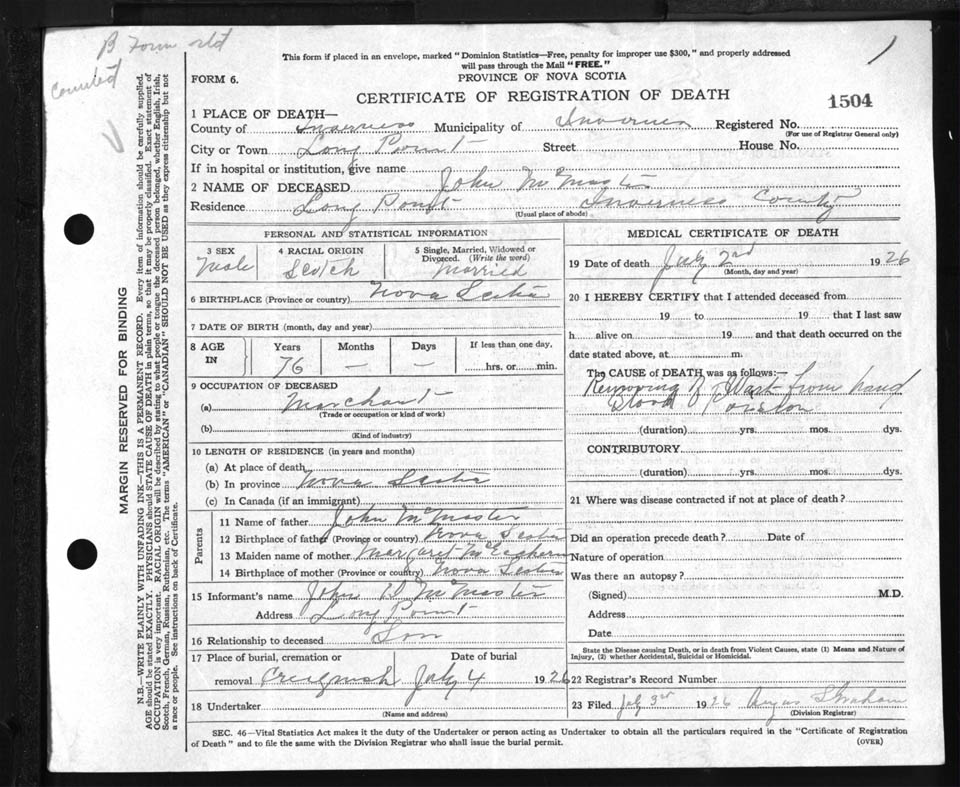 B Form
This form if placed in an envelope, marked "Dominion Statistics—Free, penalty for improper use $300," and properly addressed
will pass through the Mail "FREE."
FORM 6.
PROVINCE OF NOVA SCOTIA
CERTIFICATE OF REGISTRATION OF DEATH
1504
1 PLACE OF DEATH—
County of Inverness Municipality of Inverness Registered No.
(For use of Registrar General only)
City or Town Long Point Street House No.
If in hospital or institution, give name
2 NAME OF DECEASED John McMaster
Residence Long Point Inverness County
(Usual place of abode)
PERSONAL AND STATISTICAL INFORMATION
3 SEX 4 RACIAL ORIGIN 5 Single, Married, Widowed or
Divorced. (Write the word)
Male Scotch Married
6 BIRTHPLACE (Province or country) Nova Scotia
7 DATE OF BIRTH (month, day and year)
8 AGE IN Years Months Days If less than one day,
76 — — hrs. or min.
9 OCCUPATION OF DECEASED
(a) Marchant
(Trade or occupation or kind of work)
(b)
(Kind of industry)
10 LENGTH OF RESIDENCE (in years and months)
(a) At place of death
(b) In province Nova Scotia
(c) In Canada (if an immigrant)
Parents
11 Name of father John McMaster
12 Birthplace of father (Province or country) Nova Scotia
13 Maiden name of mother Margaret McEachern
14 Birthplace of mother (Province or country) Nova Scotia
15 Informant's name John McMaster
Address Long Point
16 Relationship to deceased Son
17 Place of burial, cremation or Date of burial
removal Creignish July 4 1926
18 Undertaker
(Name and address)
MEDICAL CERTIFICATE OF DEATH
19 Date of death July 2nd 1926
(Month, day and year)
20 I HEREBY CERTIFY that I attended deceased from
19 to 19 that I last saw
h alive on 19 and that death occurred on the
date stated above, at m.
The CAUSE of DEATH was as follows:—
Removing of Wart from hand
Blood Poision
(duration) yrs. mos. dys.
CONTRIBUTORY
(duration) yrs. mos. dys.
21 Where was disease contracted if not at place of death?
Did an operation precede death? Date of
Nature of operation
Was there an autopsy?
(Signed) M.D.
Address
Date
State the Disease causing Death, or in death from Violent Causes, state (1) Means and Nature of
Injury, (2) whether Accidental, Suicidal or Homicidal.
22 Registrar's Record Number
23 Filed July 3rd 1926 Angus Graham
(Division Registrar)
SEC. 46—Vital Statistics Act makes it the duty of the Undertaker or person acting as Undertaker to obtain all the particulars required in the "Certificate of Registration
of Death" and to file the same with the Division Registrar who shall issue the burial permit.
(OVER)
MARGIN RESERVED FOR BINDING
N.B.—WRITE PLAINLY WITH UNFADING INK—THIS IS A PERMANENT RECORD. Every item of information should be carefully supplied.
AGE should be stated EXACTLY. PHYSICIANS should STATE CAUSE OF DEATH in plain terms, so that it may be properly classified. Exact statement of
OCCUPATION is very important. RACIAL ORIGIN will be described by stating to what people or tongue the deceased person belonged, whether English, Irish,
Scotch, French, German, Russian, Ruthenian, etc. The terms "AMERICAN" or "CANADIAN" SHOULD NOT BE USED as they express citizenship but not
a race or people. See instructions on back of Certificate.